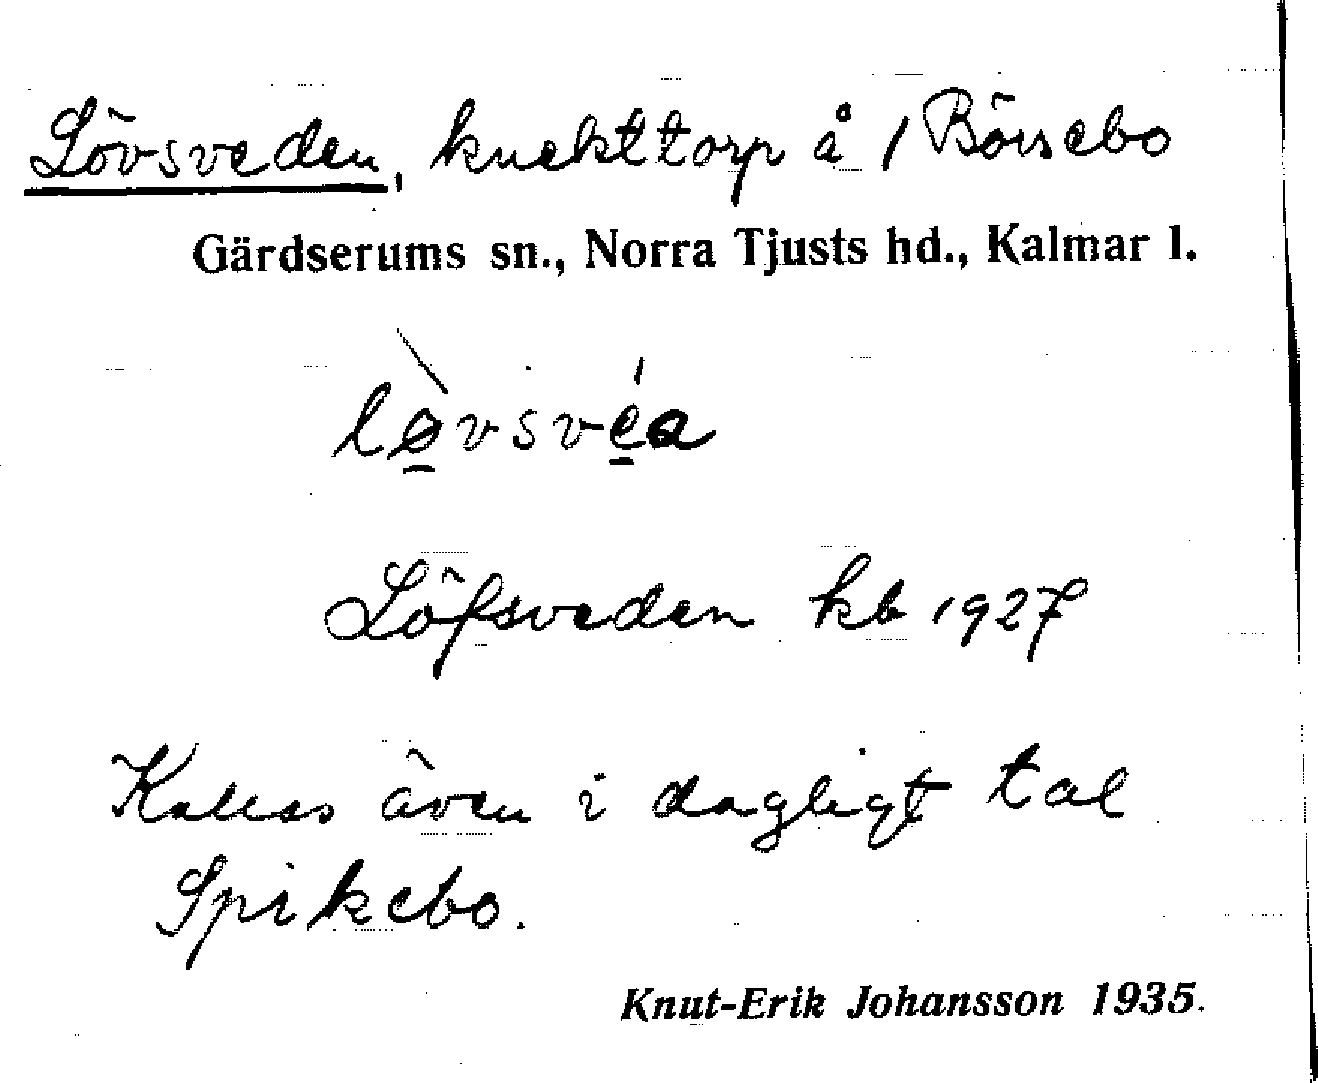 Lövsveden, knekttorp å 1 Börsebo
Gärdserums sn., Norra Tjusts hd., Kalmar l.
lø̱̀vsvé̱a
Löfsveden kb 1927
Kallas även i dagligt tal
Spikebo.
Knut-Erik Johansson 1935.